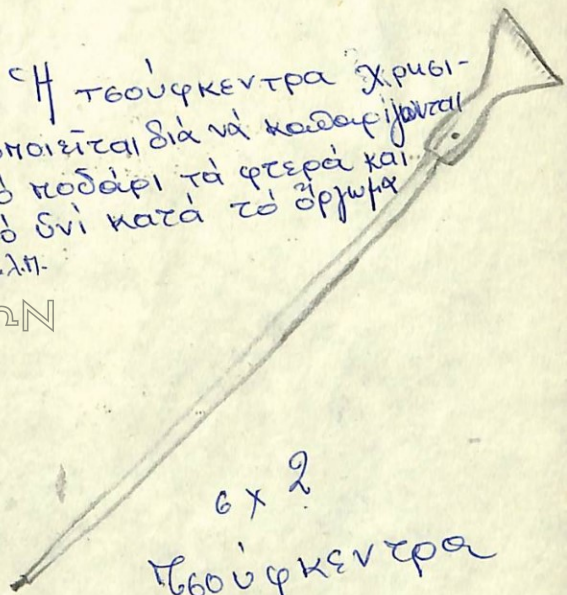 Ἡ τσούφκεντρα χρησι-
μοποιεῖται διὰ νὰ καθαρίζωνται
ό ποδάρι τὰ φτερά καὶ
ό ὑνὶ κατὰ τό ὄργωμα
κ.λ.π.
ΩΝ
σχ 2
Τσούφκεντρα